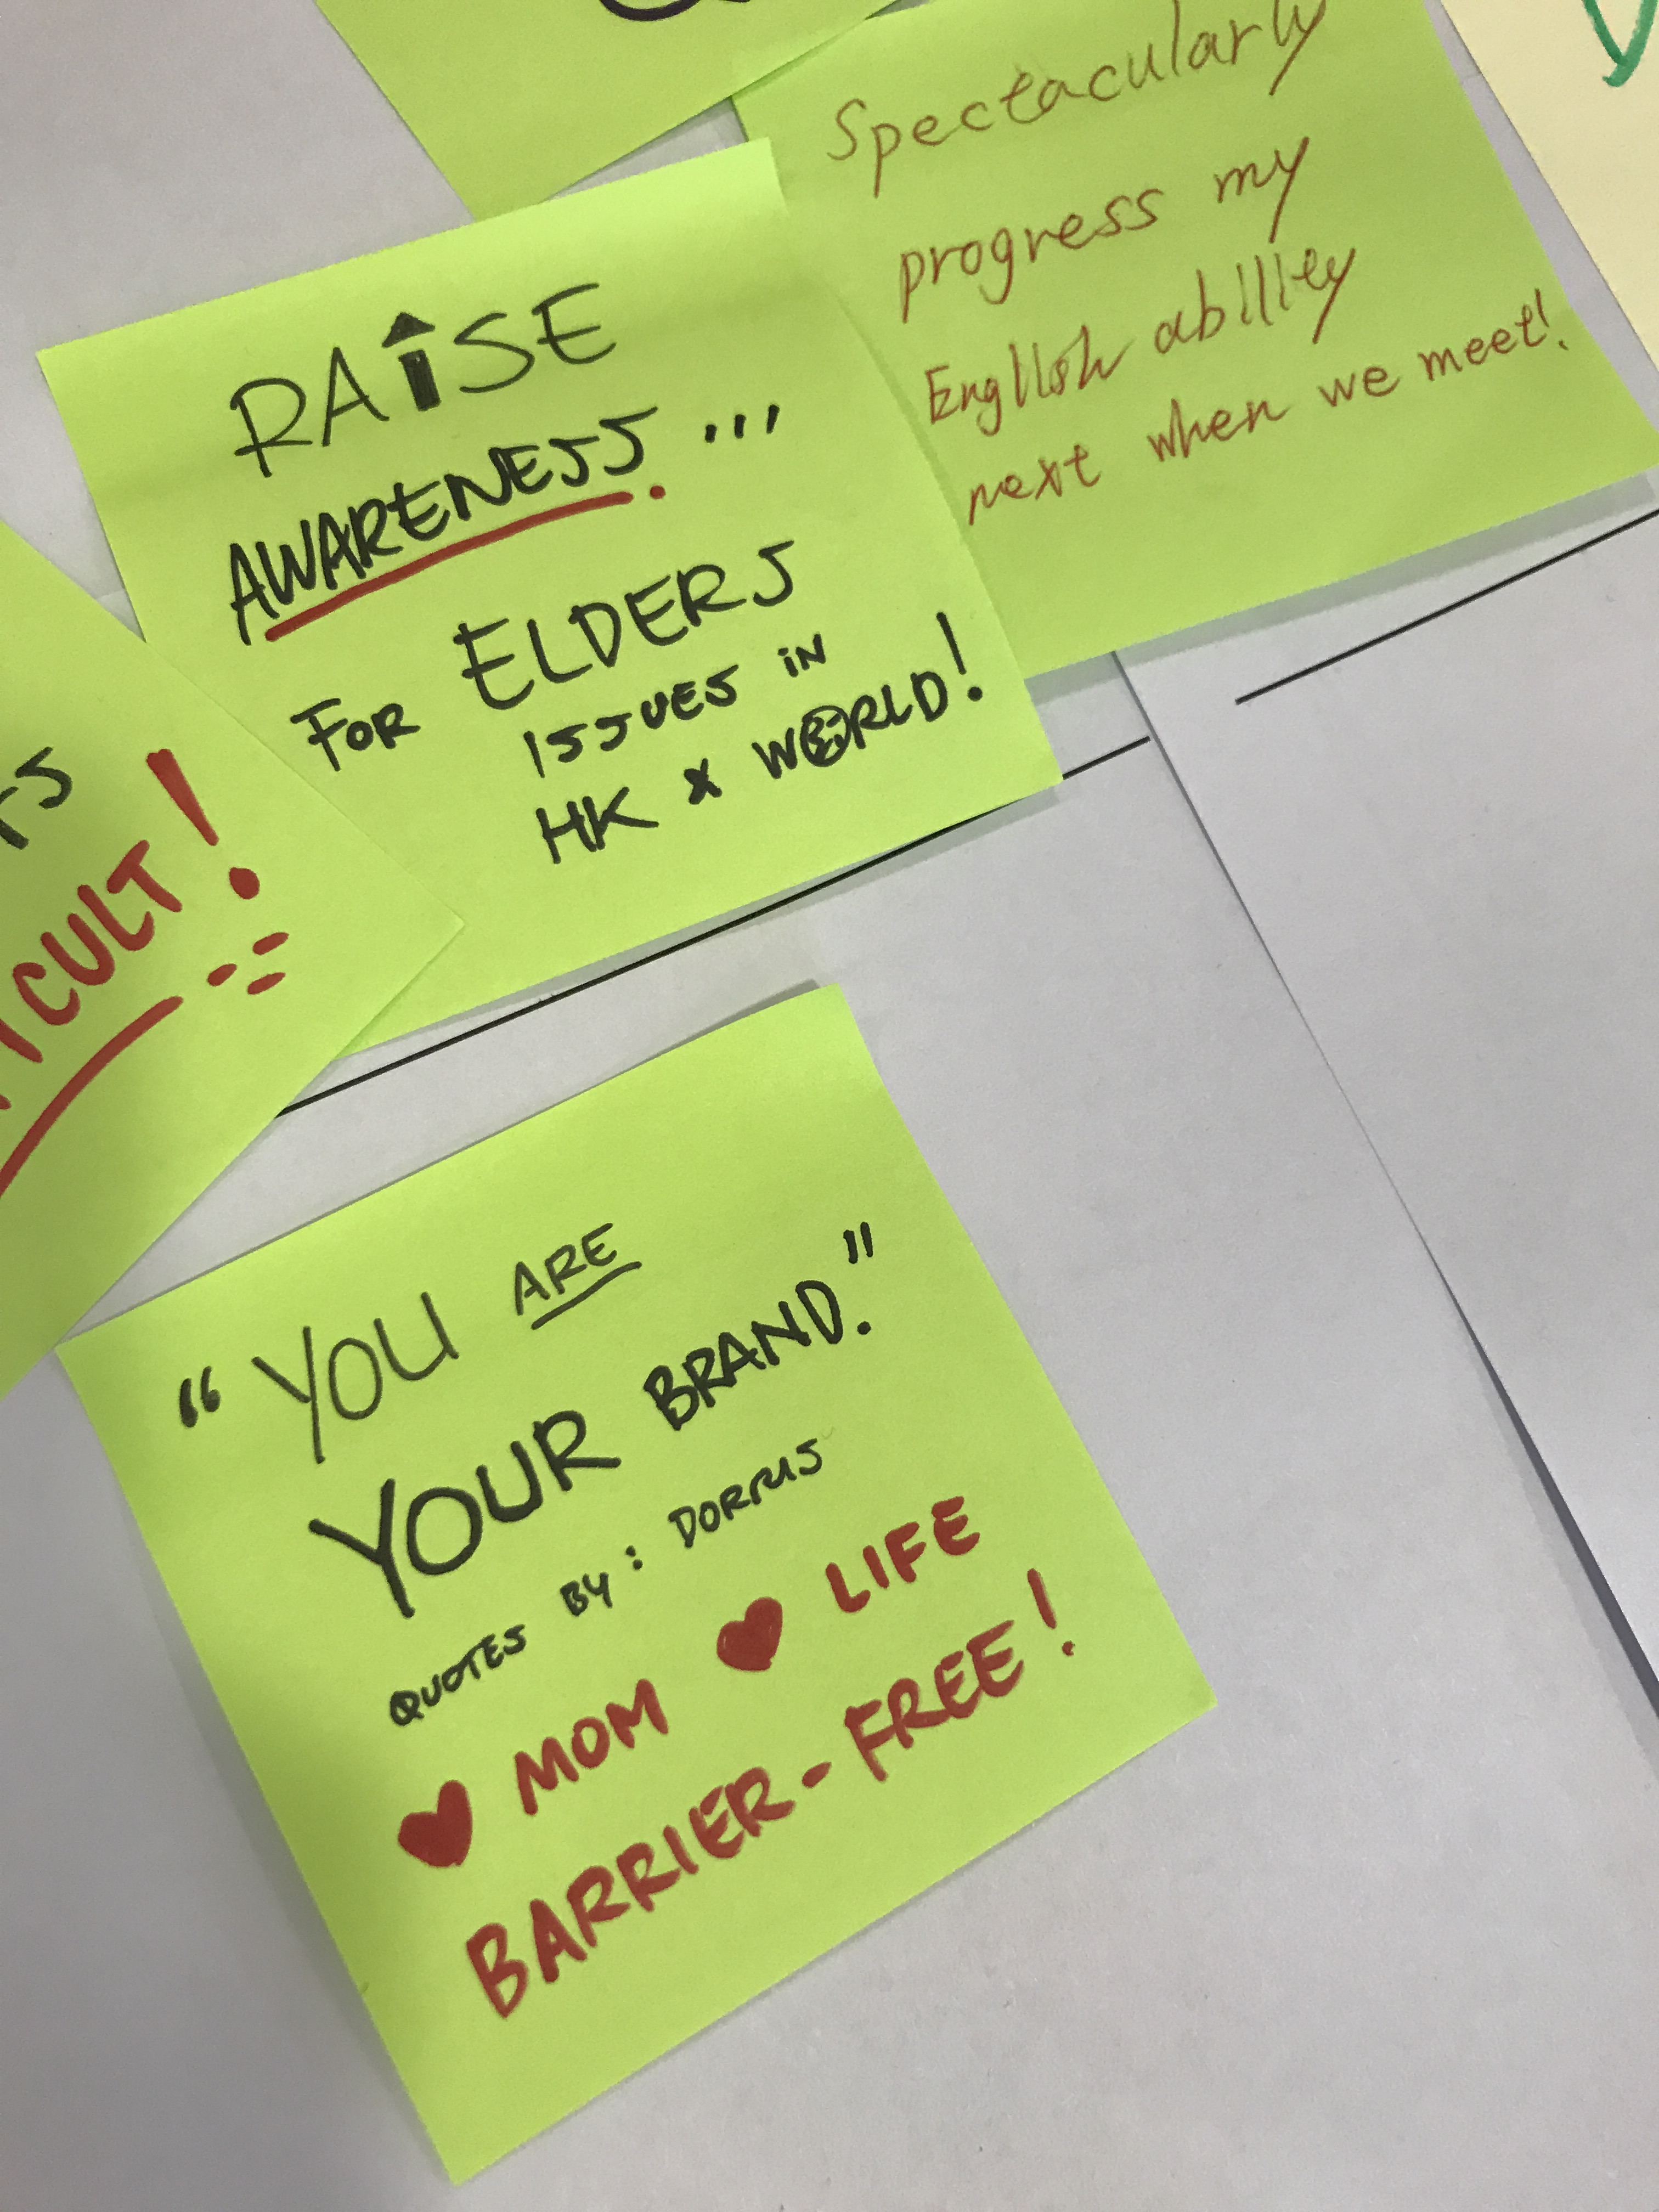 Spectacularly
progress my
English ability
next when we meet!
RAISE
AWARENESS...
FOR ELDERS
ISSUES IN
HK x WORLD!
"YOU ARE
YOUR BRAND."
QUOTES BY: DORRUS
♥ MOM ♥ LIFE
BARRIER-FREE!